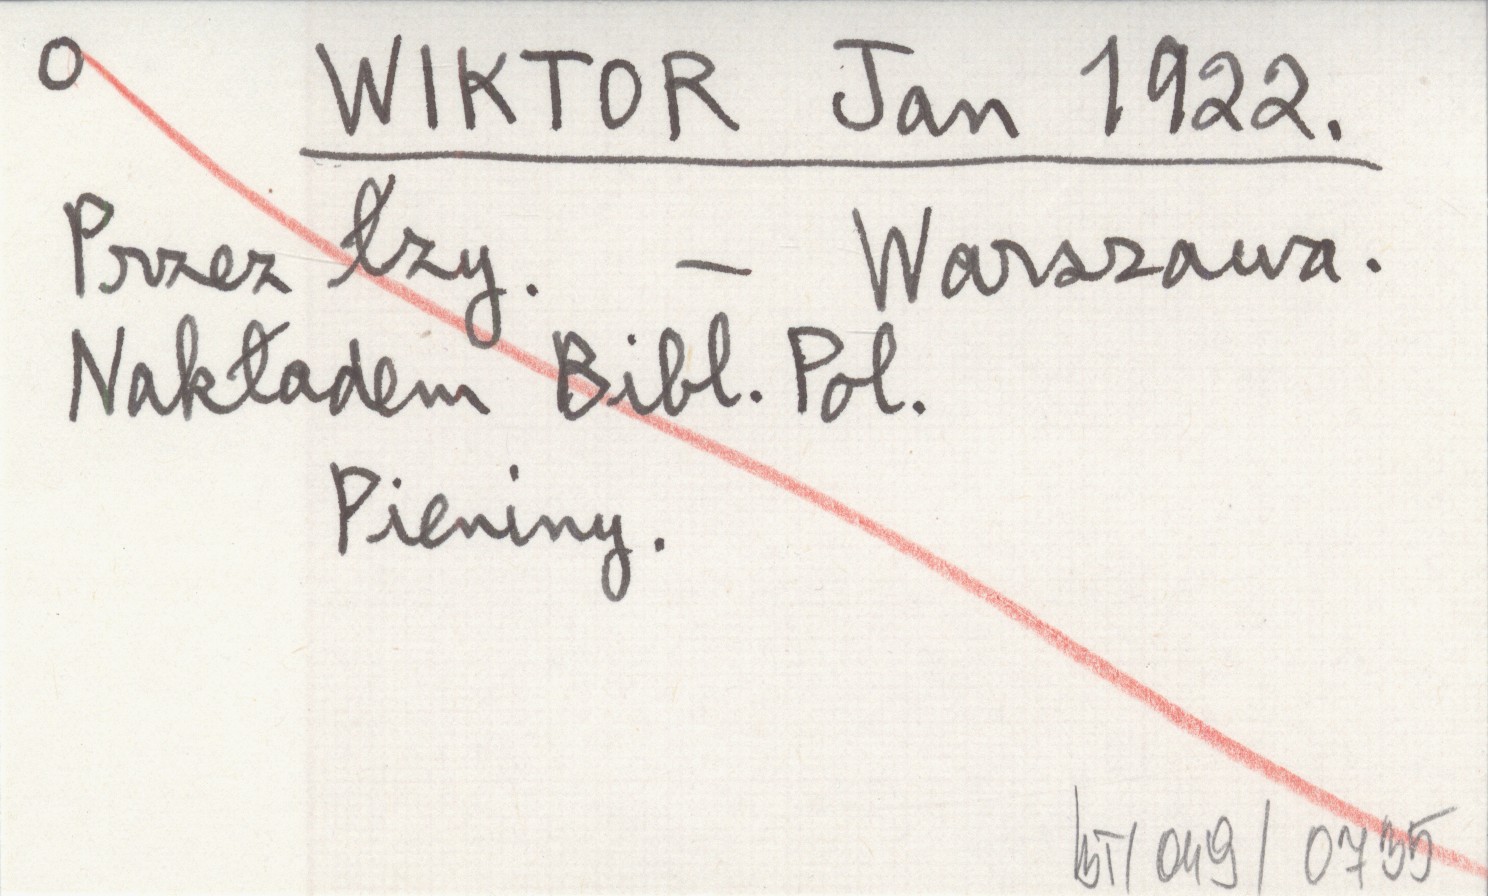 O WIKTOR Jan 1922.
Przez łzy. — Warszawa.
Nakładem Bibl. Pol.
Pieniny.
049 / 0735